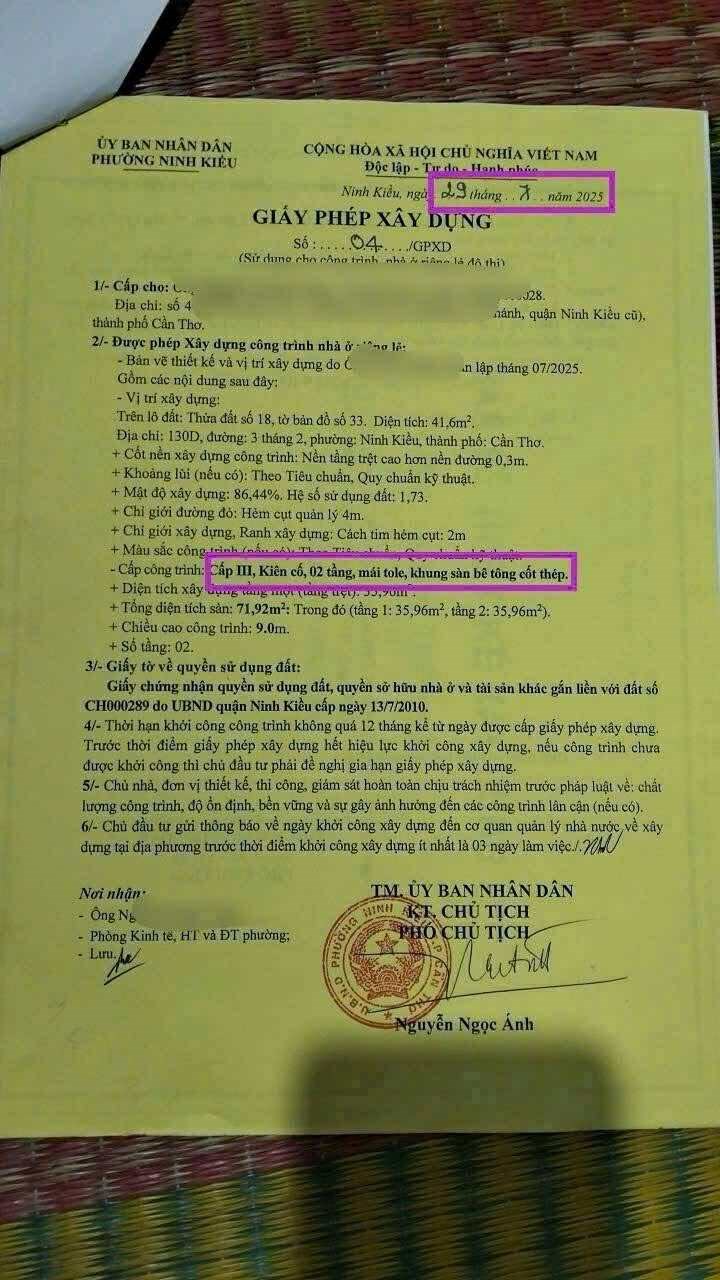 ỦY BAN NHÂN DÂN
PHƯỜNG NINH KIỀU
CỘNG HÒA XÃ HỘI CHỦ NGHĨA VIỆT NAM
Độc lập - Tự do - Hạnh phúc
Ninh Kiều, ngà 29 tháng . . 7 . . năm 2025
GIẤY PHÉP XÂY DỰNG
Số : . . . . . 04 . . . . /GPXD
(Sử dụng cho công trình nhà ở riêng lẻ đô thị)
1/- Cấp cho: 028.
Địa chỉ: số 4 hánh, quận Ninh Kiều cũ),
thành phố Cần Thơ.
2/- Được phép Xây dựng công trình nhà ở riêng lẻ:
- Bản vẽ thiết kế và vị trí xây dựng do lập tháng 07/2025.
Gồm các nội dung sau đây:
- Vị trí xây dựng:
Trên lô đất: Thửa đất số 18, tờ bản đồ số 33. Diện tích: 41,6m².
Địa chỉ: 130D, đường: 3 tháng 2, phường: Ninh Kiều, thành phố: Cần Thơ.
+ Cốt nền xây dựng công trình: Nền tầng trệt cao hơn nền đường 0,3m.
+ Khoảng lùi (nếu có): Theo Tiêu chuẩn, Quy chuẩn kỹ thuật.
+ Mật độ xây dựng: 86,44%. Hệ số sử dụng đất: 1,73.
+ Chỉ giới đường đỏ: Hẻm cụt quản lý 4m.
+ Chỉ giới xây dựng, Ranh xây dựng: Cách tim hẻm cụt: 2m
+ Màu sắc công trình (nếu có): Theo Tiêu chuẩn, Quy chuẩn kỹ thuật.
- Cấp công trình: Cấp III, Kiên cố, 02 tầng, mái tole, khung sàn bê tông cốt thép.
+ Diện tích xây dựng tầng một (tầng trệt): 35,96m².
+ Tổng diện tích sàn: 71,92m²: Trong đó (tầng 1: 35,96m², tầng 2: 35,96m²).
+ Chiều cao công trình: 9.0m.
+ Số tầng: 02.
3/- Giấy tờ về quyền sử dụng đất:
Giấy chứng nhận quyền sử dụng đất, quyền sở hữu nhà ở và tài sản khác gắn liền với đất số
CH000289 do UBND quận Ninh Kiều cấp ngày 13/7/2010.
4/- Thời hạn khởi công công trình không quá 12 tháng kể từ ngày được cấp giấy phép xây dựng.
Trước thời điểm giấy phép xây dựng hết hiệu lực khởi công xây dựng, nếu công trình chưa
được khởi công thì chủ đầu tư phải đề nghị gia hạn giấy phép xây dựng.
5/- Chủ nhà, đơn vị thiết kế, thi công, giám sát hoàn toàn chịu trách nhiệm trước pháp luật về: chất
lượng công trình, độ ổn định, bền vững và sự gây ảnh hưởng đến các công trình lân cận (nếu có).
6/- Chủ đầu tư gửi thông báo về ngày khởi công xây dựng đến cơ quan quản lý nhà nước về xây
dựng tại địa phương trước thời điểm khởi công xây dựng ít nhất là 03 ngày làm việc./.
Nơi nhận:
- Ông Ng
- Phòng Kinh tế, HT và ĐT phường;
- Lưu.
TM. ỦY BAN NHÂN DÂN
KT. CHỦ TỊCH
PHÓ CHỦ TỊCH
U.B.N.D PHƯỜNG NINH KIỀU T.P CẦN THƠ
Nguyễn Ngọc Ánh